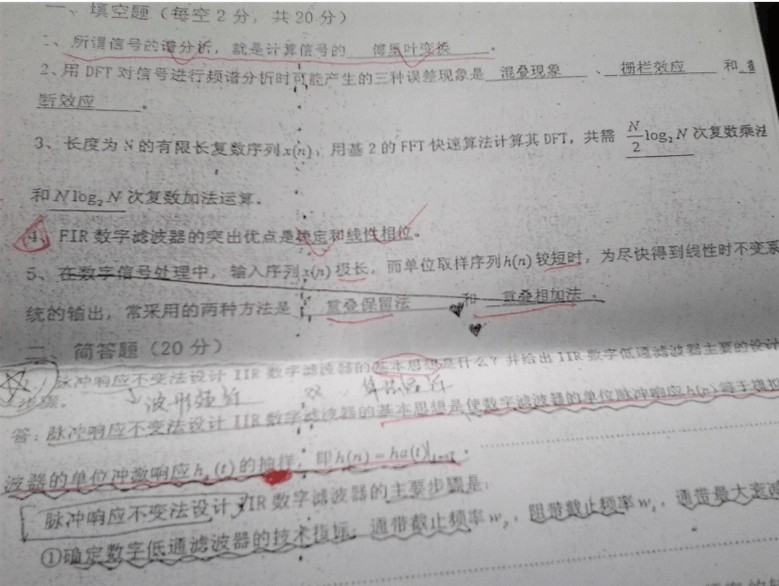 一、填空题（每空2分，共20分）
1、所谓信号的谱分析，就是计算信号的 傅里叶变换 。
2、用DFT对信号进行频谱分析时可能产生的三种误差现象是 混叠现象 、 栅栏效应 和
断效应 。
3、长度为N的有限长复数序列x(n)，用基2的FFT快速算法计算其DFT，共需 N/2 log₂N 次复数乘法
和Nlog₂N次复数加法运算。
4、FIR数字滤波器的突出优点是稳定和线性相位。
5、在数字信号处理中，输入序列x(n)极长，而单位取样序列h(n)较短时，为尽快得到线性时不变系
统的输出，常采用的两种方法是 重叠保留法 和 重叠相加法 。
二 简答题（20分）
脉冲响应不变法设计IIR数字滤波器的基本思想是什么？并给出IIR数字低通滤波器主要的设计
步骤。 波形逼近
答：脉冲响应不变法设计IIR数字滤波器的基本思想是使数字滤波器的单位脉冲响应h(n)等于模拟
波器的单位冲激响应hₐ(t)的抽样，即h(n)=ha(t)|t=nT。
脉冲响应不变法设计IIR数字滤波器的主要步骤是：
①确定数字低通滤波器的技术指标：通带截止频率wₚ，阻带截止频率wₛ，通带最大衰减